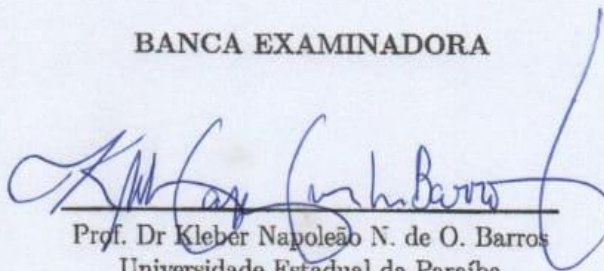 BANCA EXAMINADORA
Barros
Prof. Dr Kleber Napoleão N. de O. Barros
Universidade Estadual da Paraíba